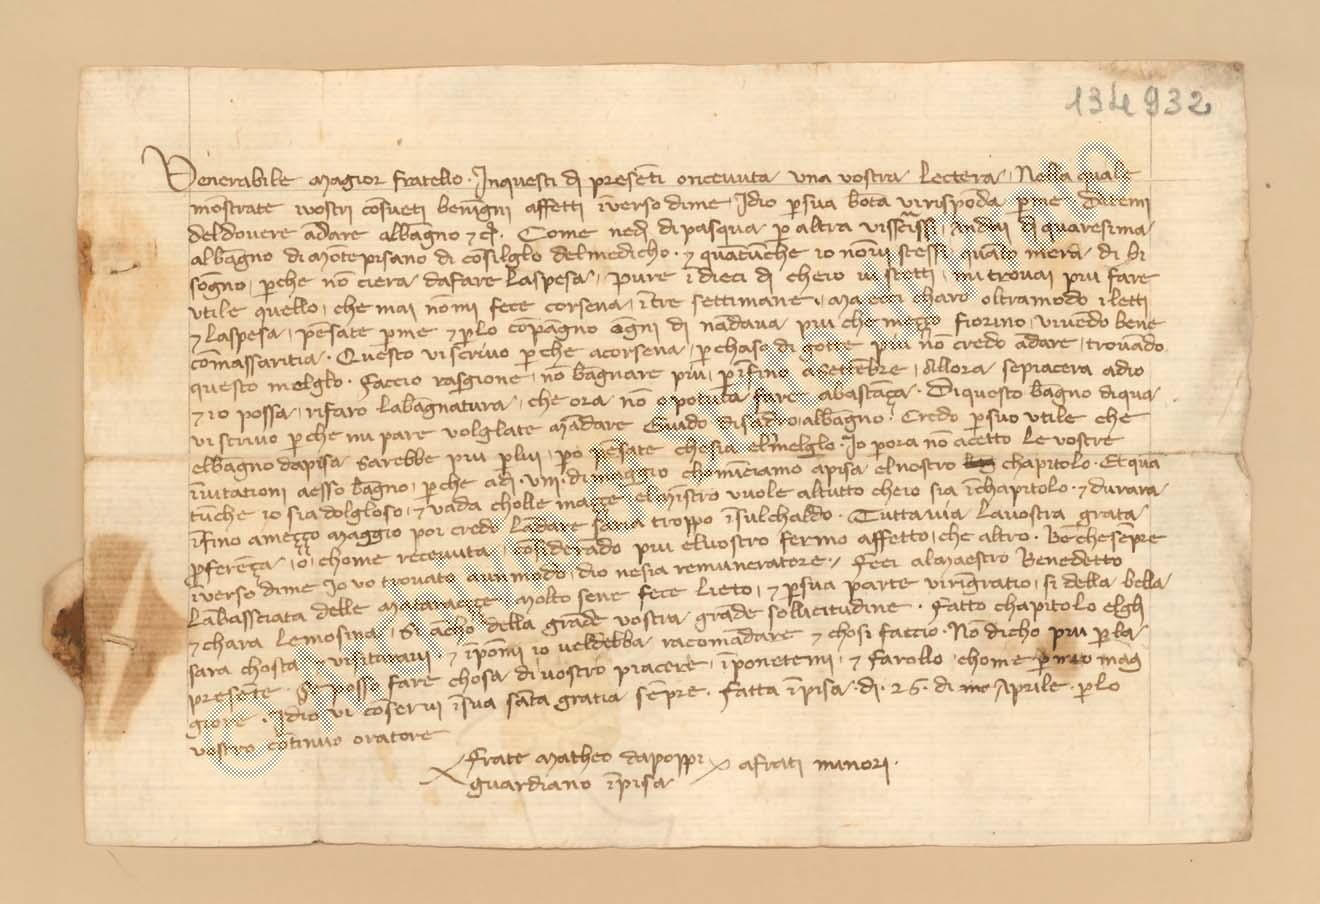 134932
Venerabile magior fratello. Inquesti dj presēti oricevuta una vostra lectera, Nella quale
mostrate ivostri cōsueti benigni affetti īverso dime, Idio p sua bōta virispōda p me. Ditemi
deldovere ādare albagno &c. Come ne dj di pasqua p altra viscrissi, andai dj quaresima
albagno di mōte pisano di cōsilglo delmedicho. & quātūche io nōvi stessi quāto mera di bi
sōgno, pche nō ciera dafare laspesa, pure ī dieci dj cheio vi stetti, mi trovai piu fare
utile quello, che mai nōmi fece corsena, ī tre settimane. Ma ecci charo oltramodo i letti
& laspesa, pēsate p me & p lo cōpagno ōgni di nādava piu che meçço fiorino, vivēdo bene
cōmassaritia. Questo vi scrivo p che acorsena, p chaso di gotte piu nō credo ādare, trovādo
questo melglo. Faccio rasgione, nō bagnare piu, p īfino a settēbre, Allora sepiacera adio
& io possa, rifaro labagnatura, che ora nō o potuta fare abastāça. Di questo bagno diqua
vi scrivo p che mi pare volglate mādare Guido disādro albagno. Credo p suo utile che
elbagno dapisa sarebbe piu p lui, po pēsate chesia elmelglo. Io pora nō acetto le vostre
īvitationi aesso bagno, p che adj .viii. di maggio chomīciamo apisa elnostro chapitolo. Et quā
tūche io sia dolgloso, & vada cholle maççe, elministro vuole altutto cheio sia īchapitolo. & durara
īfino ameçço maggio poi credo lādare saria troppo īsulchaldo. Tuttavia lavostra grata
pferēça, o chome recevuta, cōsiderādo piu elvostro fermo affetto, che altro. Bēchesēpre
īverso dime Io vo trovato aun modo, dio nesia remuneratore. Feci almaestro Benedetto
lābassciata delle mataracçe, molto sene fece lieto, & p sua parte viringratio, si della bella
& chara lemosina, Si ācho della grāde vostra grāde sollicitudine. Fatto chapitolo elgli
sara chosta & visitaravi & īponi io veldebba racomādare & chosi faccio. Nō dicho piu p la
presēte. Se posso fare chosa di vostro piacere, īponetemi, & farollo, chome p mio mag
giore. Idio vi cōservi īsua sāta gratia sēpre. Fatta īpisa. dj. 26. di Aprile. p lo
vostro cōtinuo oratore
Frate Matheo dapoppi afrati minori.
guardiano īpisa